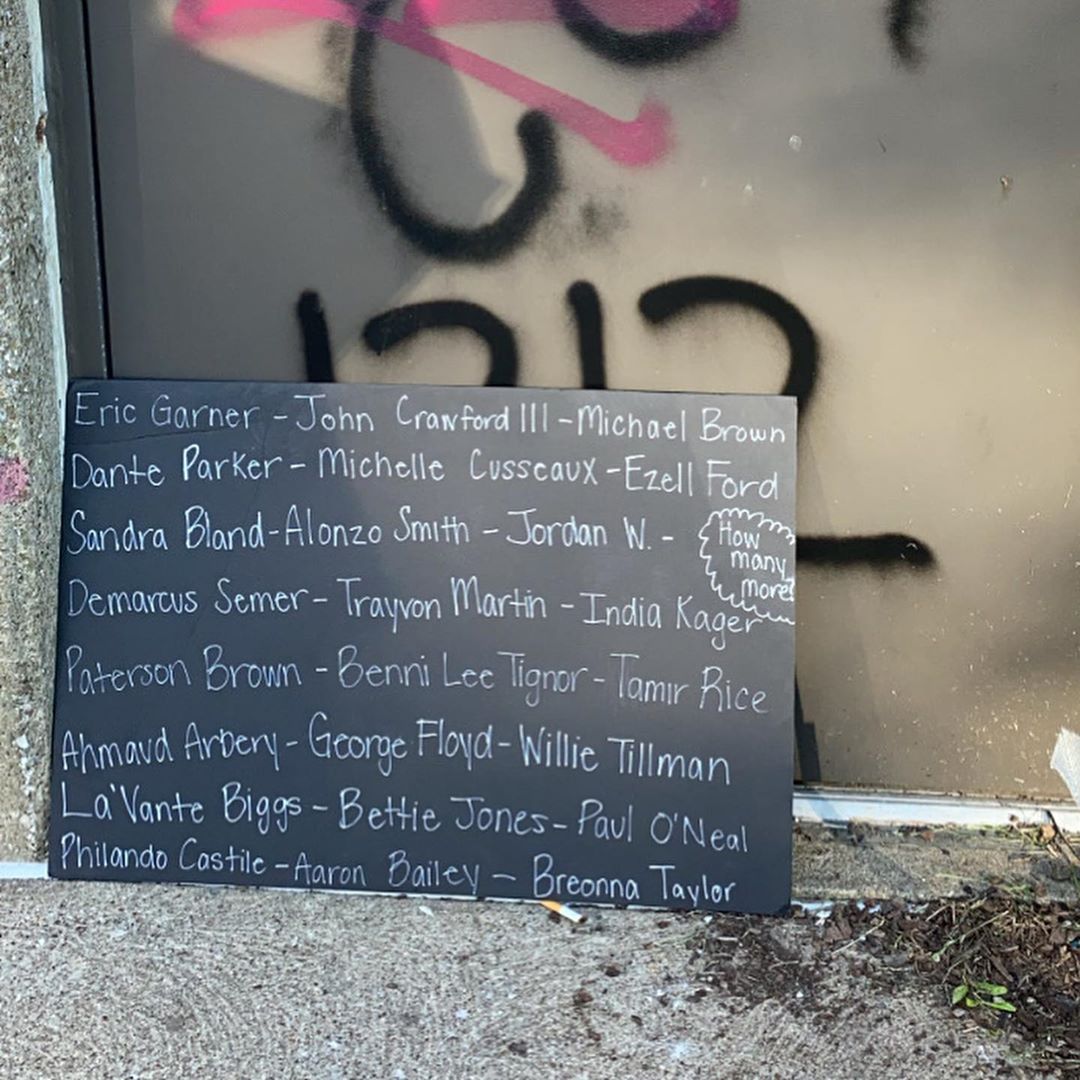 1312
Eric Garner - John Crawford III - Michael Brown
Dante Parker - Michelle Cusseaux - Ezell Ford
Sandra Bland - Alonzo Smith - Jordan W. -
How many more?
Demarcus Semer - Trayvon Martin - India Kager
Paterson Brown - Benni Lee Tignor - Tamir Rice
Ahmaud Arbery - George Floyd - Willie Tillman
La'Vante Biggs - Bettie Jones - Paul O'Neal
Philando Castile - Aaron Bailey - Breonna Taylor